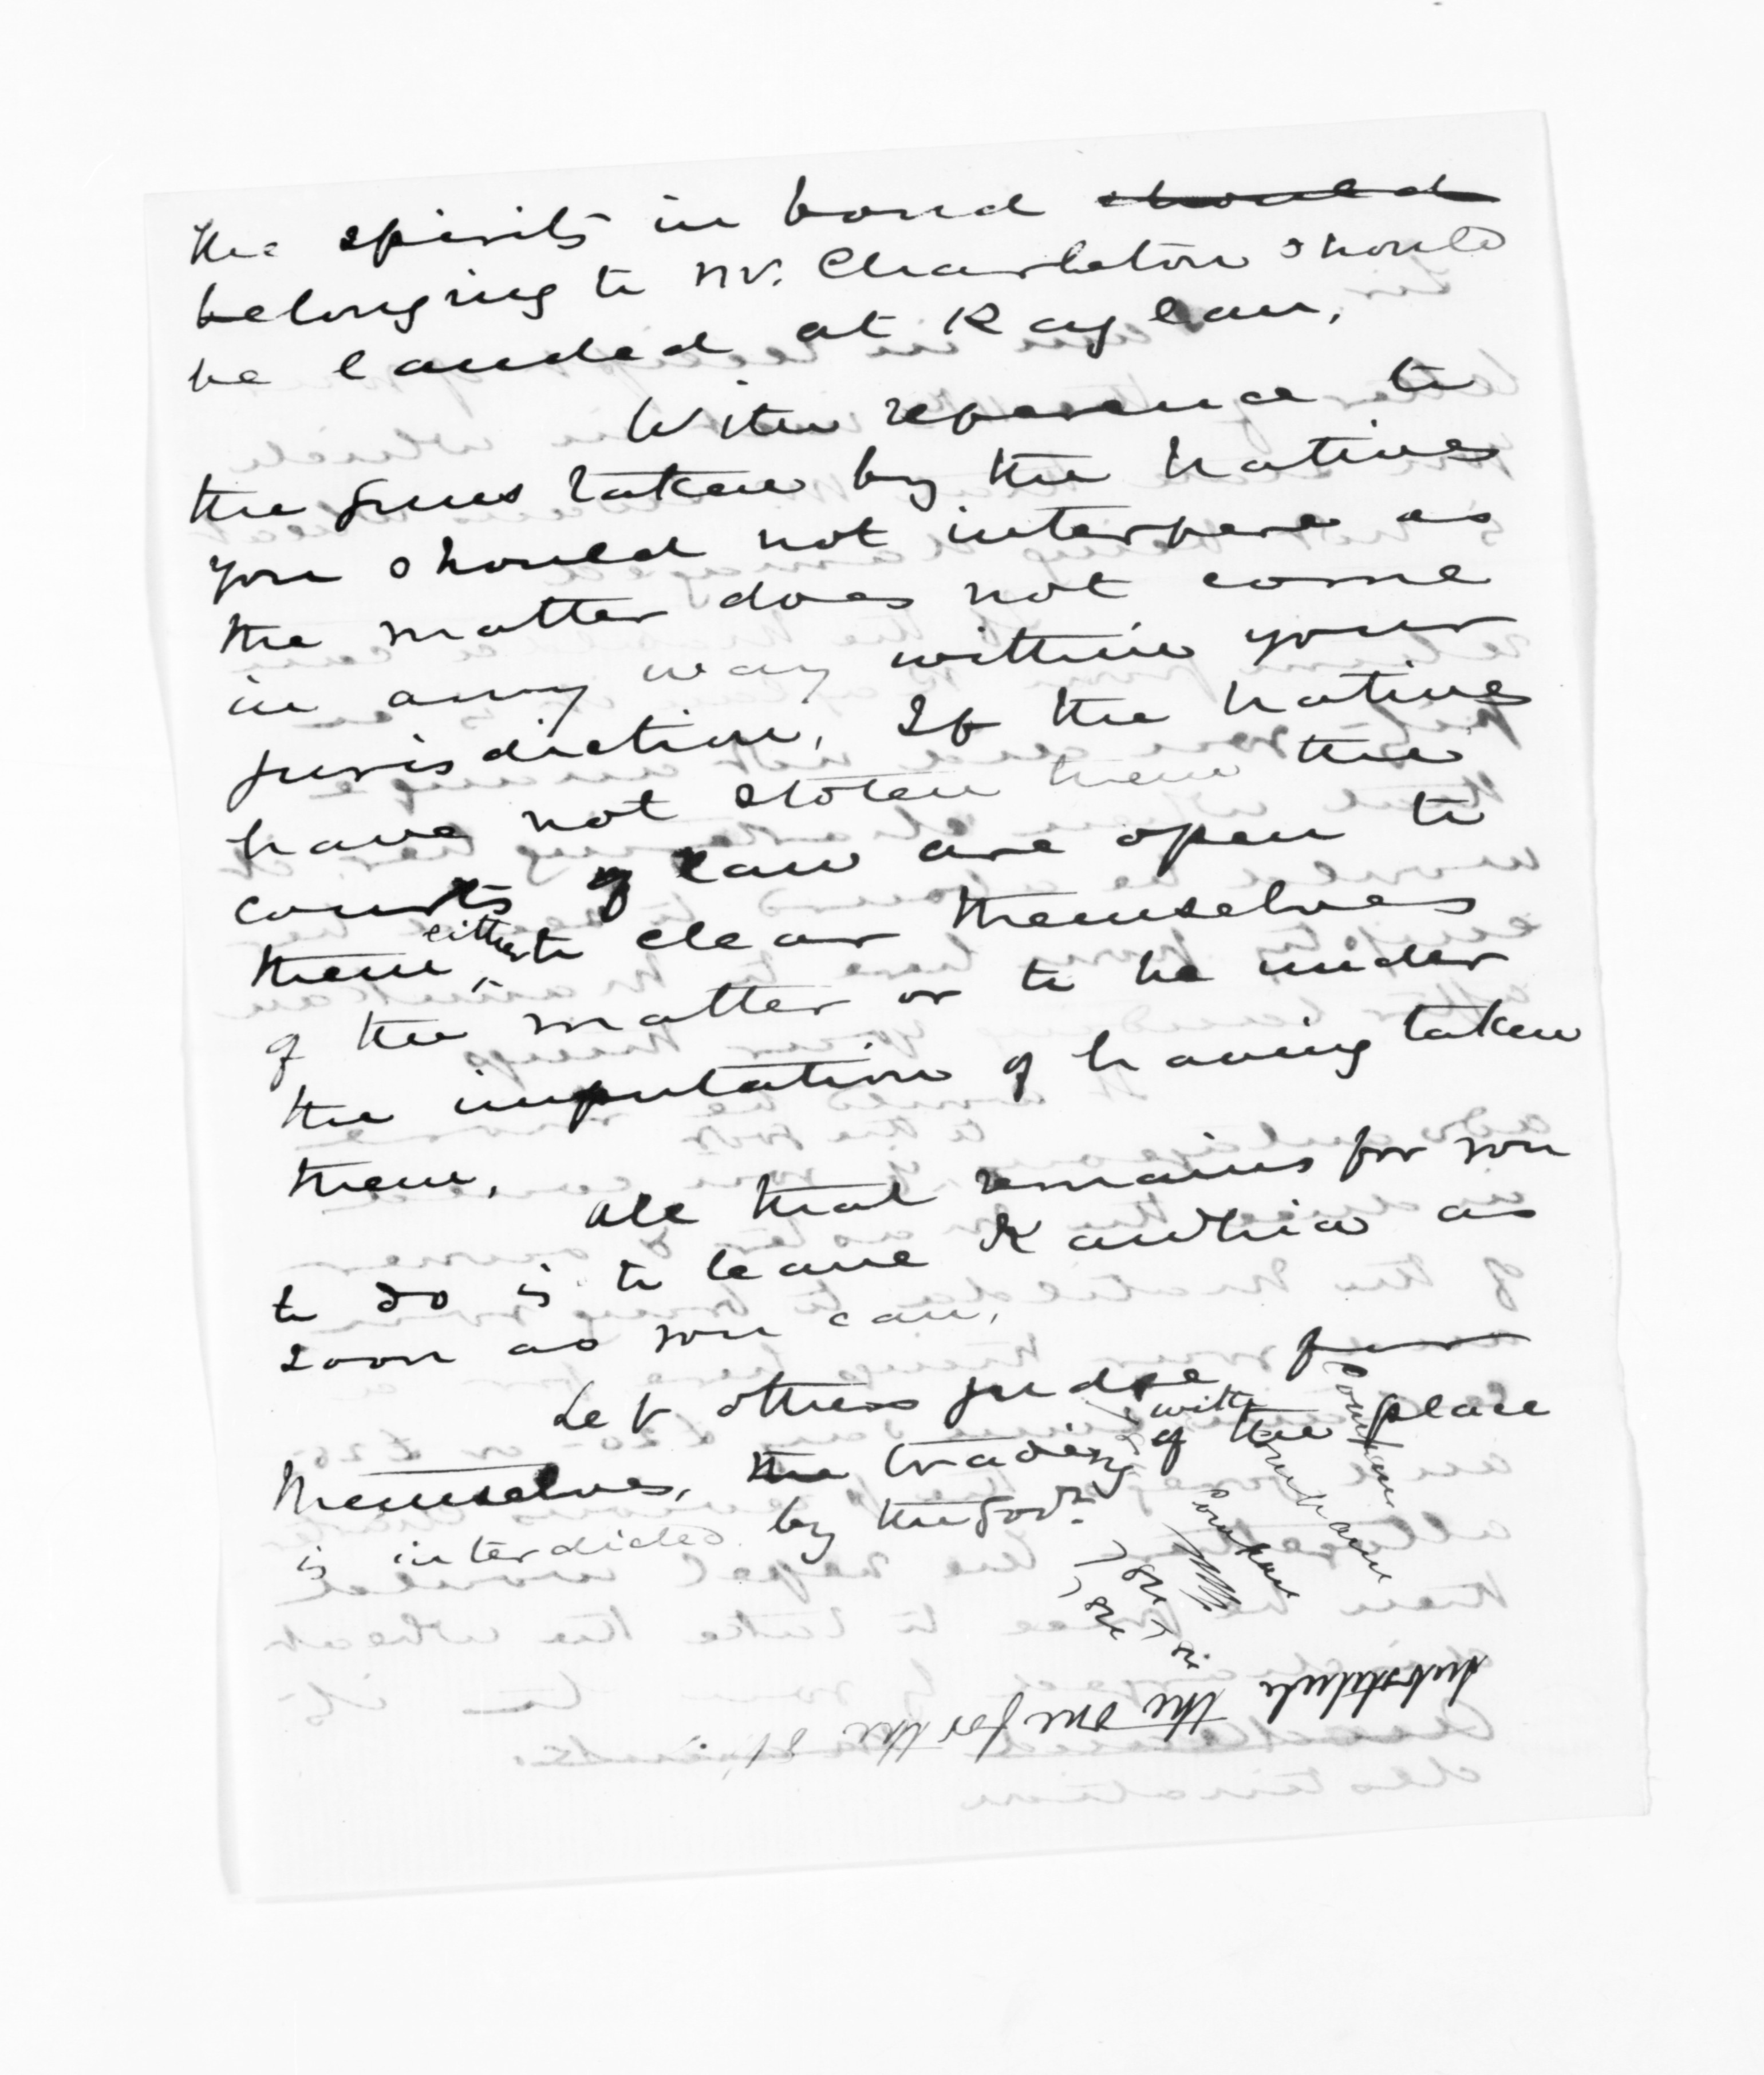 the spirits in bond should
belonging to Mr. Charleton should
be landed at Raglan,
With reference to
the guns taken by the Natives
you should not interfere as
the matter does not come
in any way within your
jurisdiction, If the Natives
have not stolen them the
courts of law are open to
them, either to clear themselves
of the matter or to be under
the imputation of having taken
them,
All that remains for you
to do is to leave Kawhia as
soon as you can,
Let others judge for
themselves, the trading with of the place
is interdicted by the Govt.
substitute the one for the